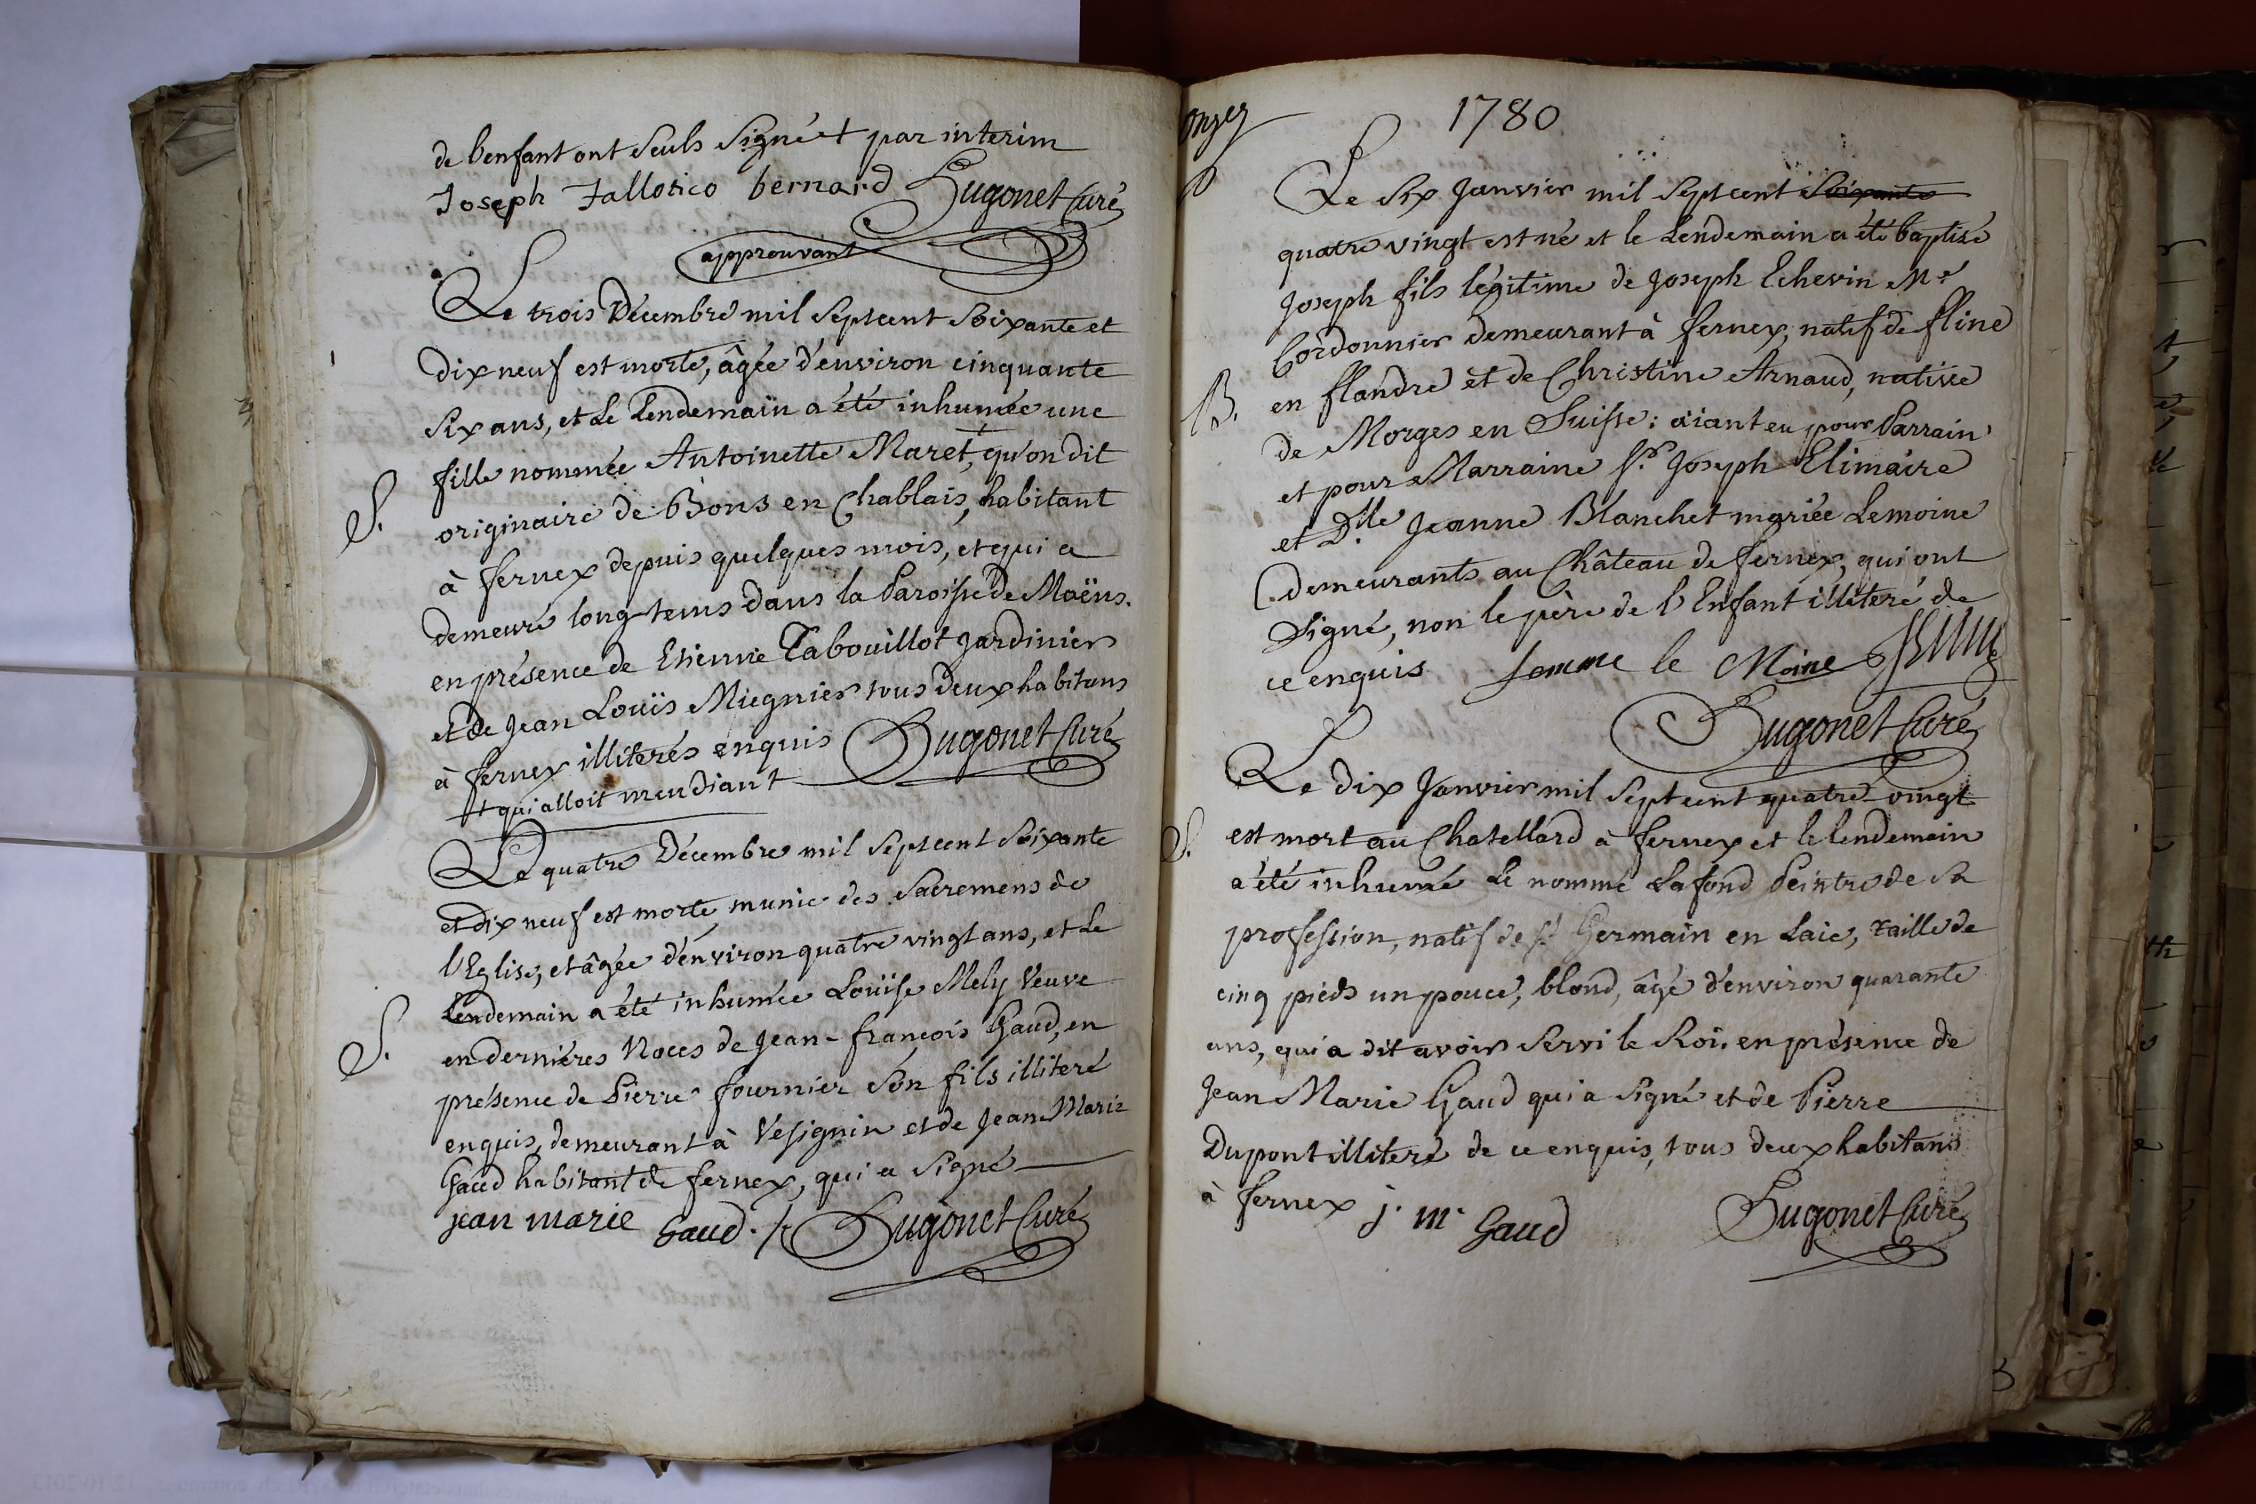 de l'enfant ont seuls signé + par interim
Joseph Tallotico bernard Hugonet Curé
approuvant
Le trois Décembre mil Septcent soixante et
dix neuf est morte, âgée d'environ cinquante
six ans, et Le Lendemain a été inhumée une
fille nommée Antoinette Maret,+ qu'on dit
S.
originaire de Bons en Chablais, habitant
à fernex depuis quelques mois, et qui a
demeuré long-tems dans la Paroisse de Maëns.
en présence de Etienne Tabouillot Jardinier
et de Jean Louïs Miegnier tous deux habitans
à fernex illiterés enquis Hugonet Curé
+ qui alloit mendiant
Le quatre Décembre mil Septcent Soixante
et dix neuf est morte, munie des Sacremens de
l'Eglise, et âgée d'environ quatre vingt ans, et Le
Lendemain a été inhumée Louïse Mely Veuve
S.
en dernières Noces de Jean-françois Gaud, en
présence de Pierre fournier son fils illiteré
enquis, demeurant à Vesignin et de Jean Marie
Gaud habitant de fernex, qui a signé
jean marie Gaud. Hugonet Curé
onzes
1780
Le Six Janvier mil Septcent Soixante
quatre vingt est né et le Lendemain a été baptisé
Joseph fils légitime de Joseph Echevin Me
Cordonnier demeurant à fernex, natif de fline
B.
en flandre et de Christine Arnaud, native
de Morges en Suisse: aiant eu pour Parrain
et pour Marraine Sr. Joseph Elimaire
et Dlle Jeanne Blanchet mariée Lemoine
demeurants au Château de fernex, qui ont
Signé, non le père de l'Enfant illiteré de
ce enquis femme le Moine
Hugonet Curé
Le dix Janvier mil Septcent quatre-vingt
S.
est mort au Chatellard à fernex et le lendemain
a été inhumé Le nommé Lafond Peintre de Sa
profession, natif de St Germain en Laie, taille de
cinq pieds un pouce, blond, âgé d'environ quarante
ans, qui a dit avoir Servi le Roi. en présence de
Jean Marie Gaud qui a Signé et de Pierre
Dupont illiteré de ce enquis, tous deux habitans
à fernex j. m. Gaud Hugonet Curé